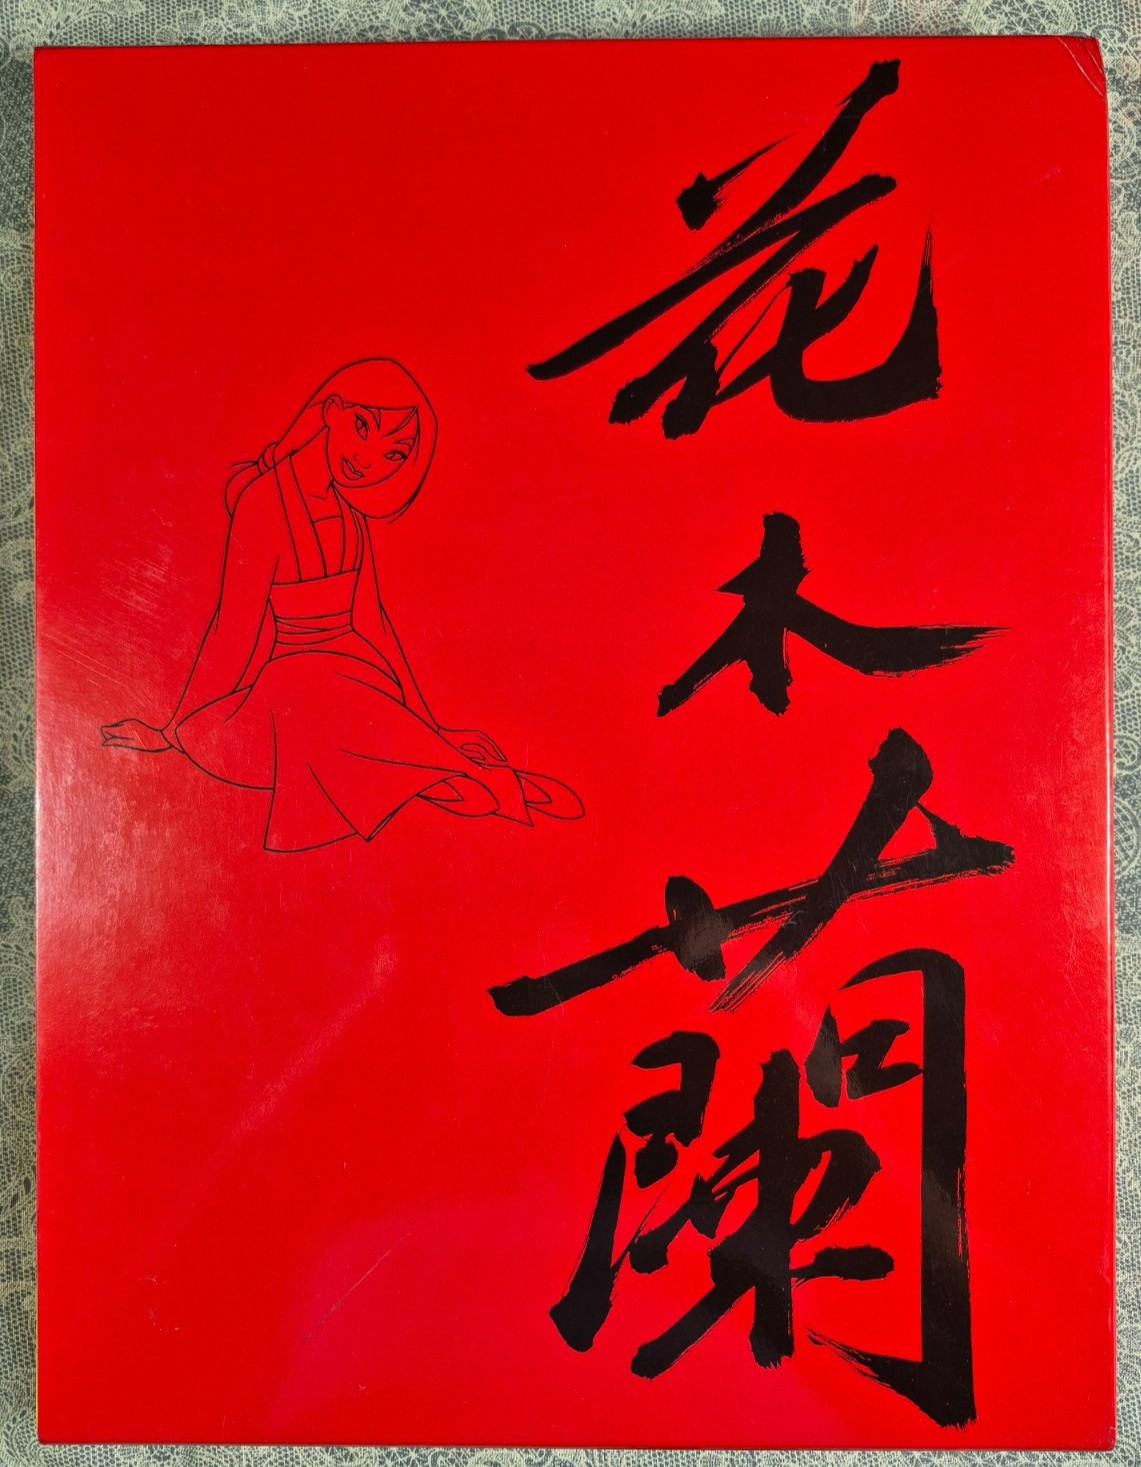 花木蘭